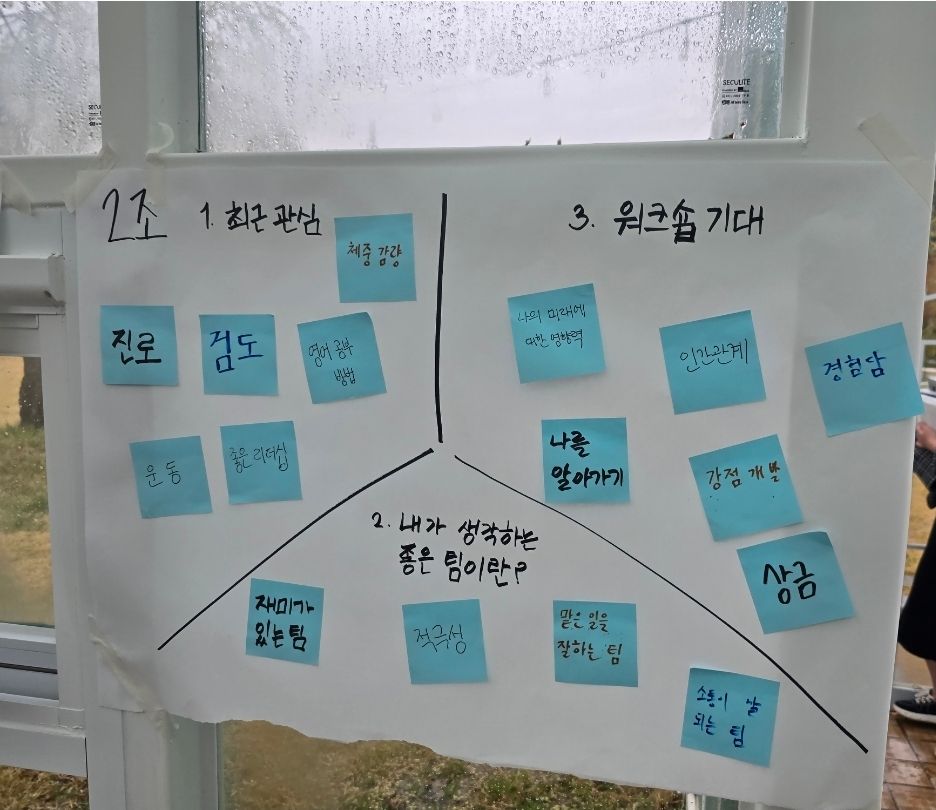 SECULITE
2조
1. 최근 관심
체중 감량
진로
검도
영어 공부
방법
운동
좋은 리더십
3. 워크숍 기대
나의 미래에
대한 영향력
인간관계
경험담
나를
알아가기
강점 개발
상금
2. 내가 생각하는
좋은 팀이란?
재미가
있는 팀
적극성
맡은 일을
잘하는 팀
소통이 잘
되는 팀